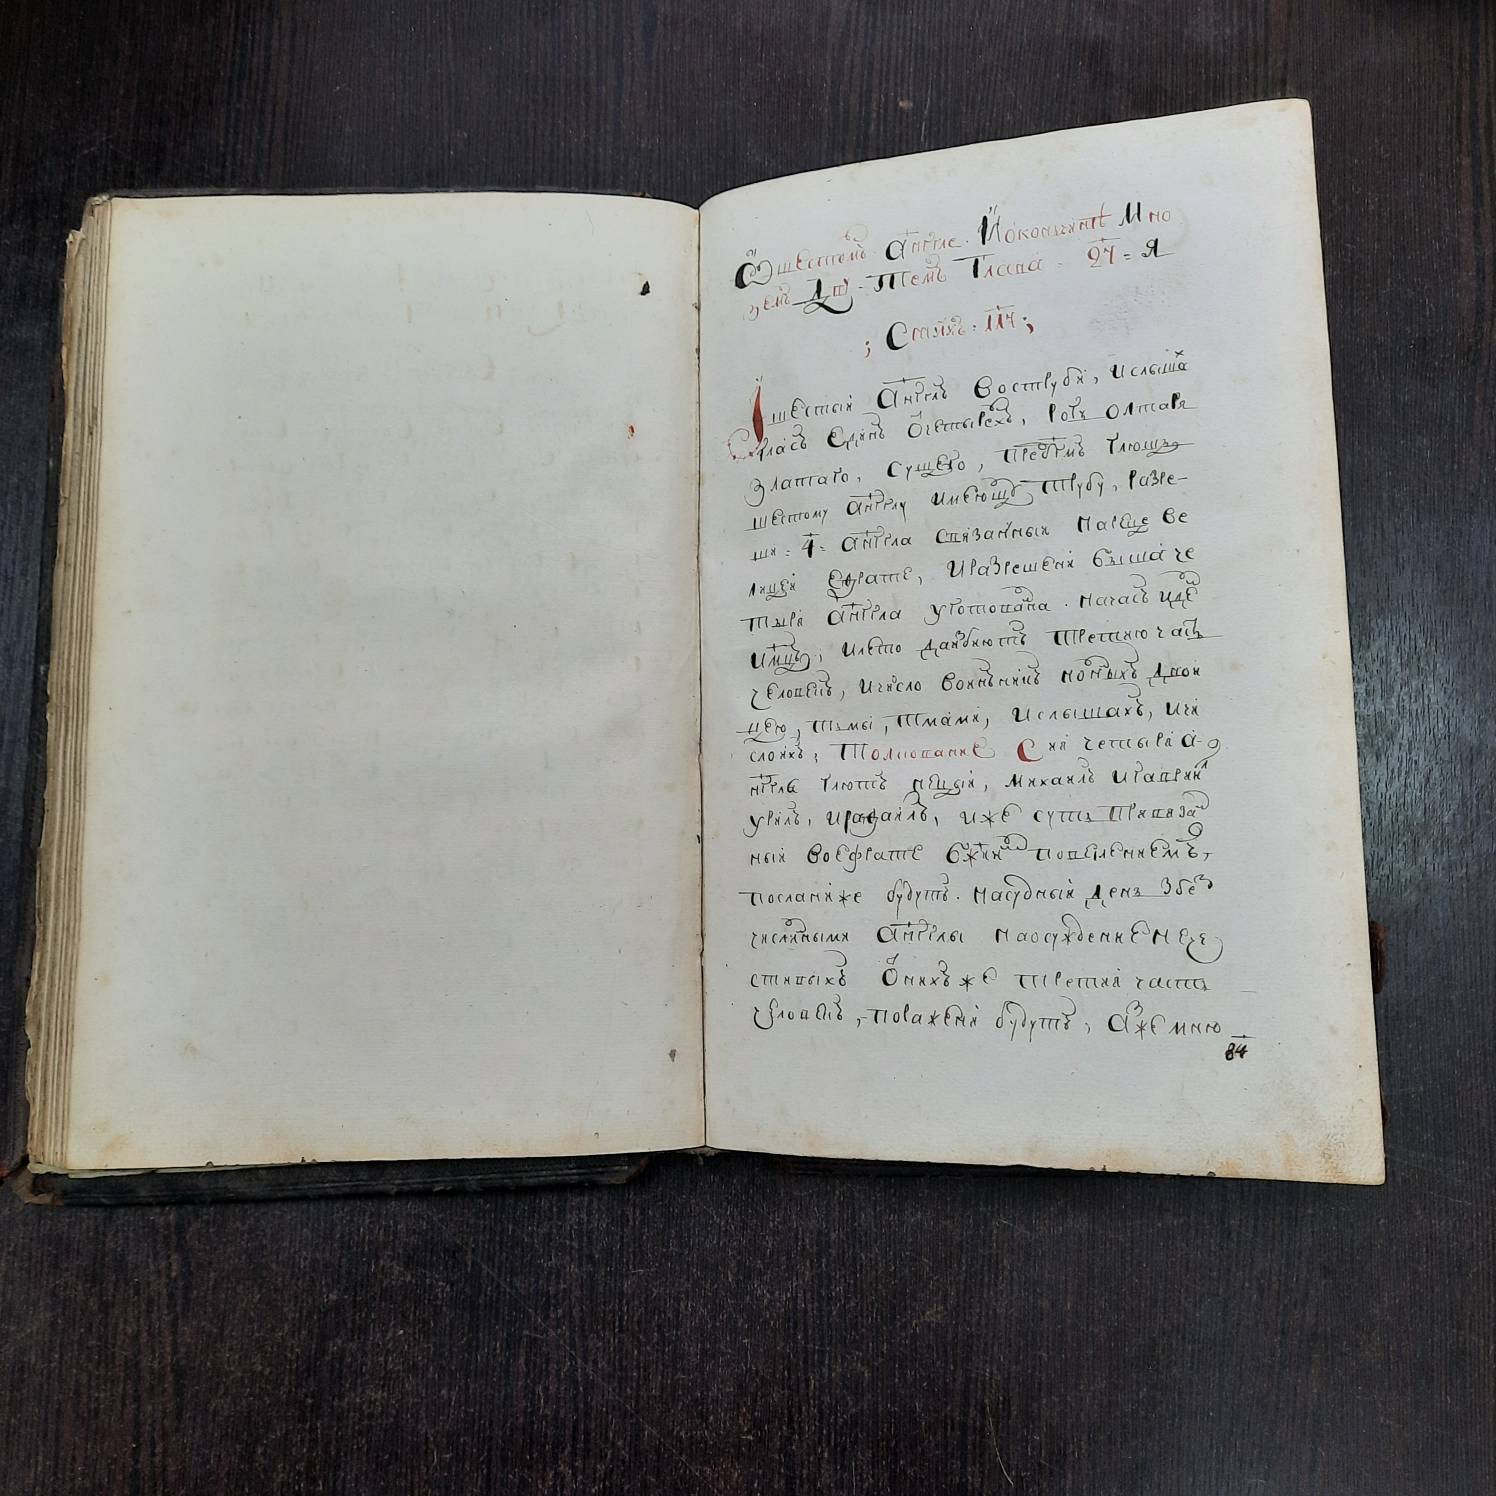 Ѿ шестомъ Англе. И окончанiе Мно
земъ Дшу - Темъ Глава · 27 = Я
; Стихъ · 117 ;
И шестыи Англъ вострꙋби, и слыша
гласъ единъ ѿ четырехъ, рогъ олтаря
златаго, сꙋщего, предъ глющъ
шестому англꙋ имеющꙋ трубу, разре-
ши = 4 = англа связанныя на реце ве
лицеи ефрате, и разрешени быша че
тыри англа уготована · на часъ и де
и мцъ, и лето да избиютъ третию часть
человекъ, и число воинъ конныхъ двои
цею, тьмы, тмами, и слышахъ, и чи
слоихъ, Толкование Сия четыри а-
нгла глютъ нецыи, михаилъ и гаврии
уриилъ, и рафаилъ, иже суть привяза
ныи во ефрате бжии повелениемъ,
посланиже будутъ · на судныи день з бе
численными англы на осуждение нече
стивыхъ ѿ нихъже третия часть
человекъ, поражени будутъ, аже мню
84